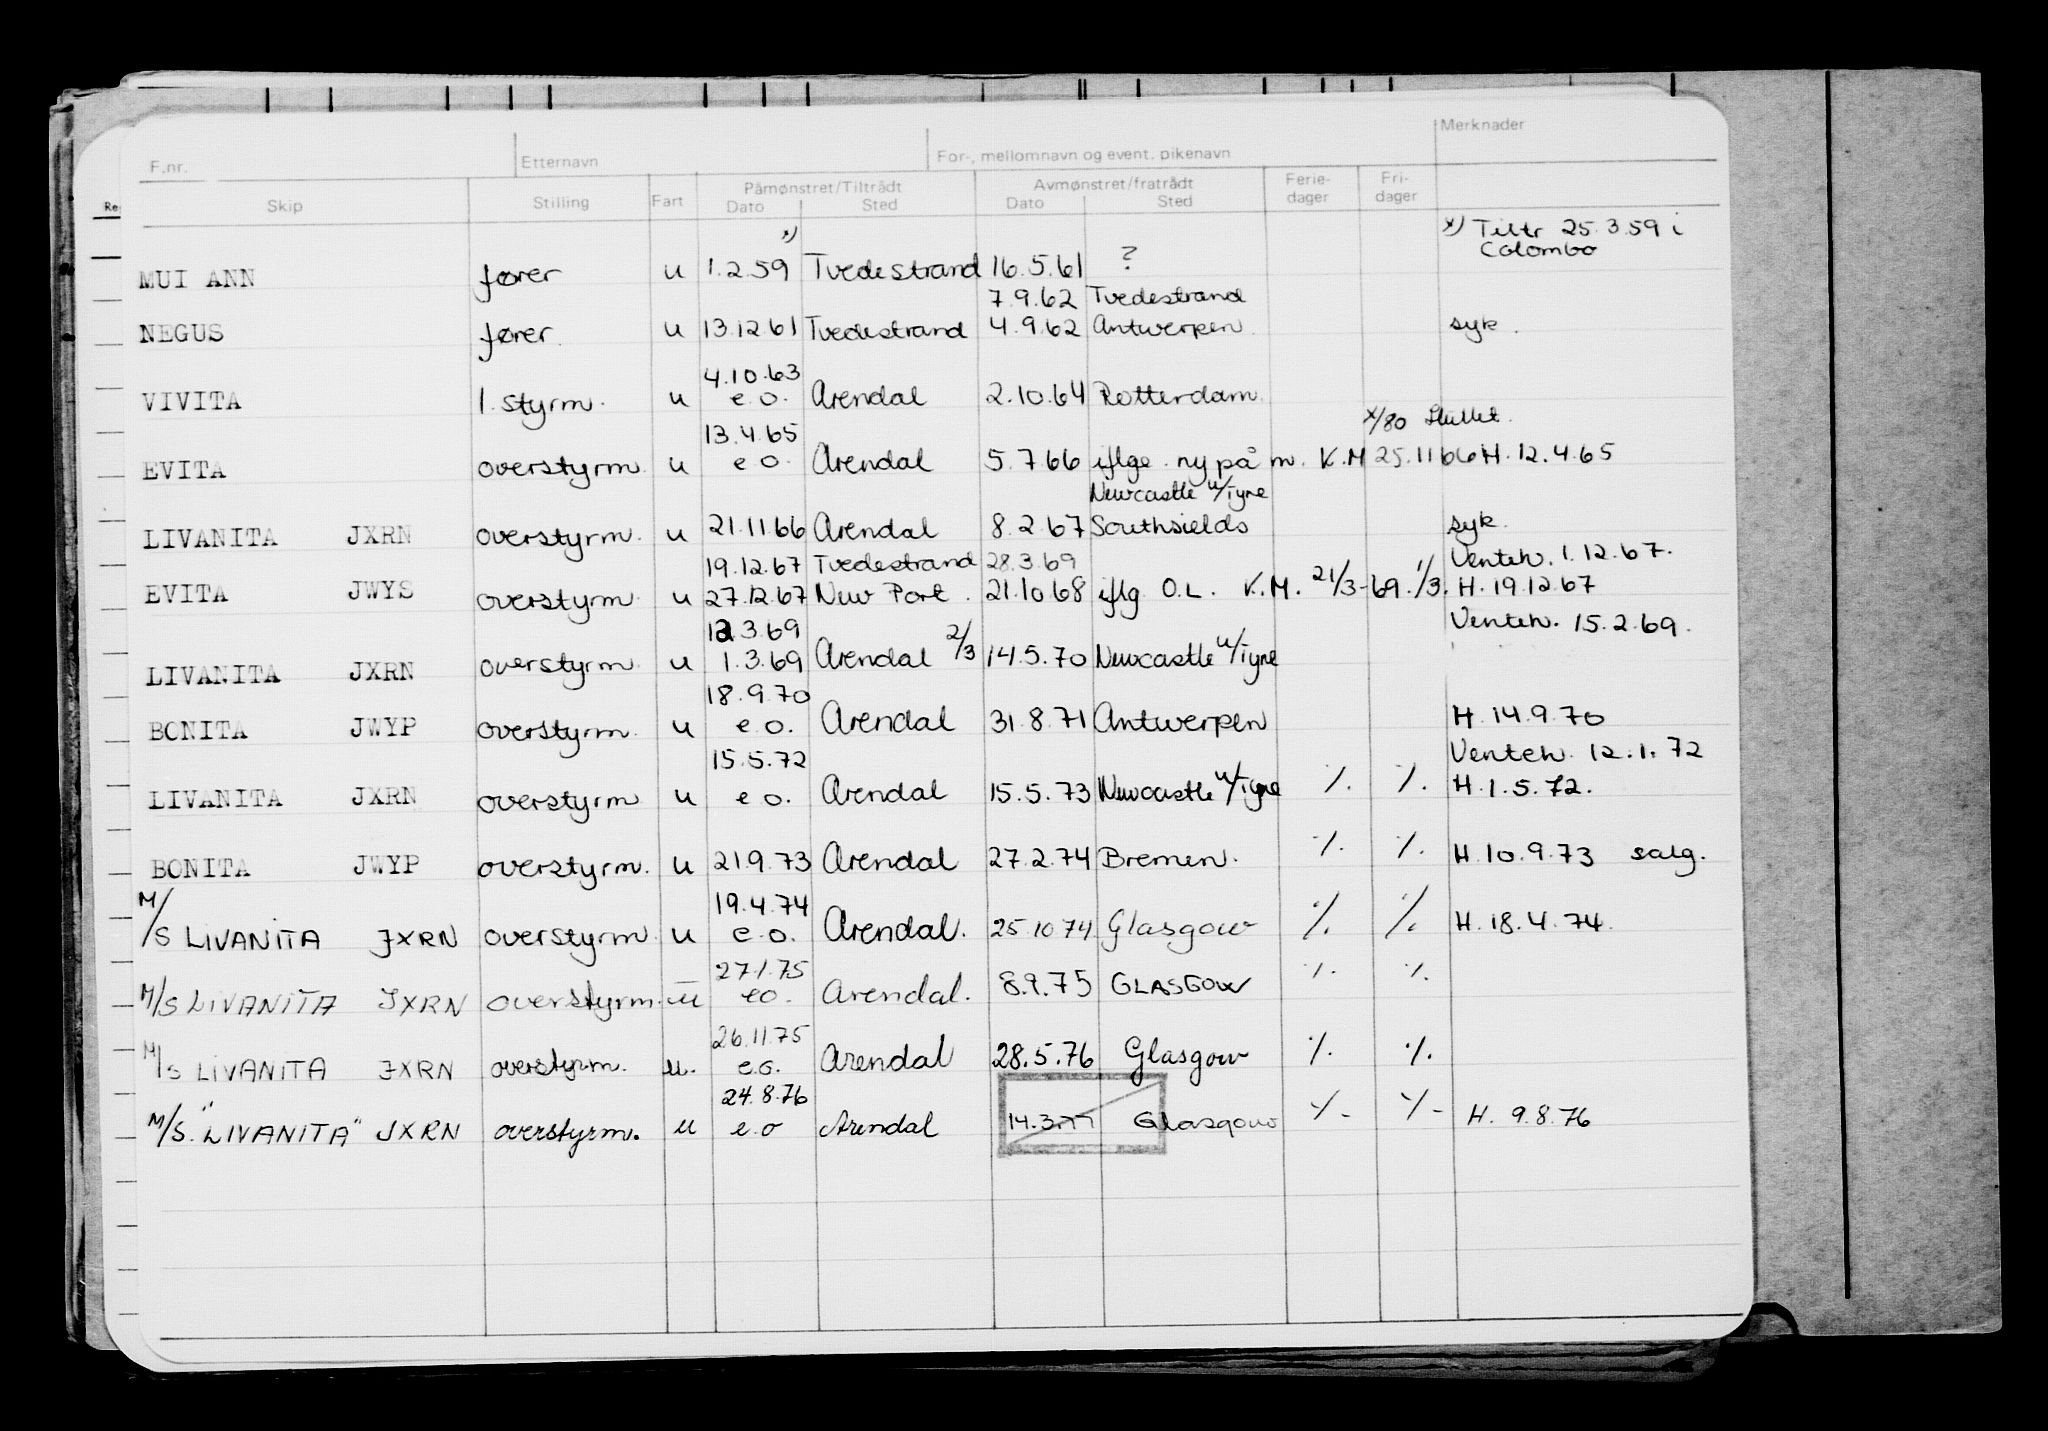 F.nr. Etternavn For-, mellomnavn og event. pikenavn Merknader
Skip Stilling Fart Påmønstret/Tiltrådt Dato Sted Avmønstret/fratrådt Dato Sted Ferie-dager Fri-dager
x) x) Tiltr 25.3.59 i
Colombo
MUI ANN fører u 1.2.59 Tvedestrand 16.5.61 ?
7.9.62 Tvedestrand
NEGUS fører. u 13.12.61 Tvedestrand 4.9.62 Antwerpen syk.
4.10.63
VIVITA 1. styrm. u e.o. Arendal 2.10.64 Rotterdam.
13.4.65 x/80 Sluttet.
EVITA overstyrm. u e.o. Arendal 5.7.66 iflge. ny på m. K.M 25.11.66 H. 12.4.65
Newcastle u/Tyne
LIVANITA JXRN overstyrm. u 21.11.66 Arendal 8.2.67 Southsields syk.
19.12.67 Tvedestrand 28.3.69 Venteh. 1.12.67.
EVITA JWYS overstyrm. u 27.12.67 New Port. 21.10.68 iflg O.L. K.M. 21/3-69. 1/3. H. 19.12.67
12.3.69 Venteh. 15.2.69.
LIVANITA JXRN overstyrm. u 1.3.69 Arendal 2/3 14.5.70 Newcastle u/Tyne
18.9.70
BONITA JWYP overstyrm. u e.o. Arendal 31.8.71 Antwerpen H. 14.9.70
15.5.72 Venteh. 12.1.72
LIVANITA JXRN overstyrm u e.o. Arendal 15.5.73 Newcastle u/Tyne ./. ./. H. 1.5.72.
BONITA JWYP overstyrm. u 21.9.73 Arendal 27.2.74 Bremen. ./. ./. H. 10.9.73 salg.
19.4.74
M/S LIVANITA JXRN overstyrm. u e.o. Arendal. 25.10.74. Glasgow ./. ./. H. 18.4.74.
27.1.75
M/S LIVANITA JXRN overstyrm. u eo. Arendal. 8.9.75 GLASGOW ./. ./.
26.11.75
M/s LIVANITA JXRN overstyrm. u. e.o. Arendal 28.5.76 Glasgow ./. ./.
24.8.76
M/S. "LIVANITA" JXRN overstyrm. u e.o Arendal 14.3.77 Glasgow ./- ./- H. 9.8.76